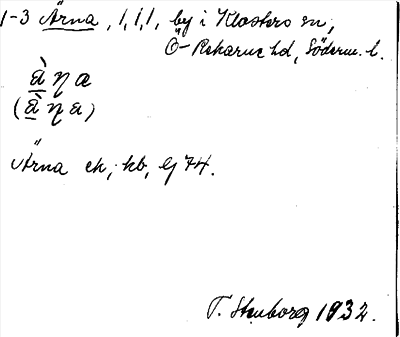 1-3 Ärna, 1, 1, 1, by i Klosters sn,
Ö-Rekarne hd, Söderm. l.
Ärna ek, hb, G 74.
T. Stenborg 1932.